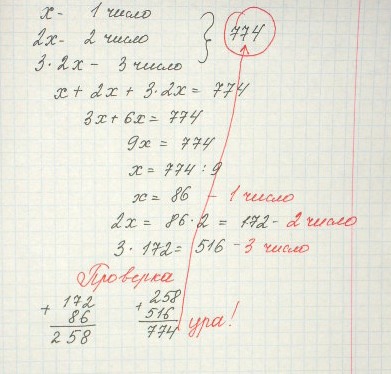 x - 1 число
2x - 2 число
3·2x - 3 число
} 774
x + 2x + 3·2x = 774
3x + 6x = 774
9x = 774
x = 774 : 9
x = 86 - 1 число
2x = 86·2 = 172 - 2 число
3·172 = 516 - 3 число
Проверка
+ 172
86
258
+ 258
516
774
ура!